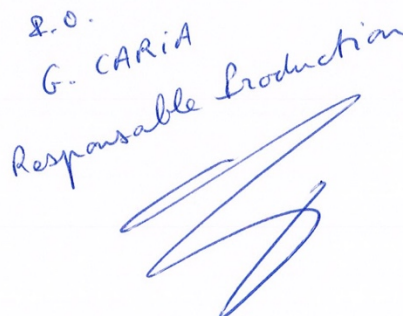 P.O.
G. CARiA
Responsable Production